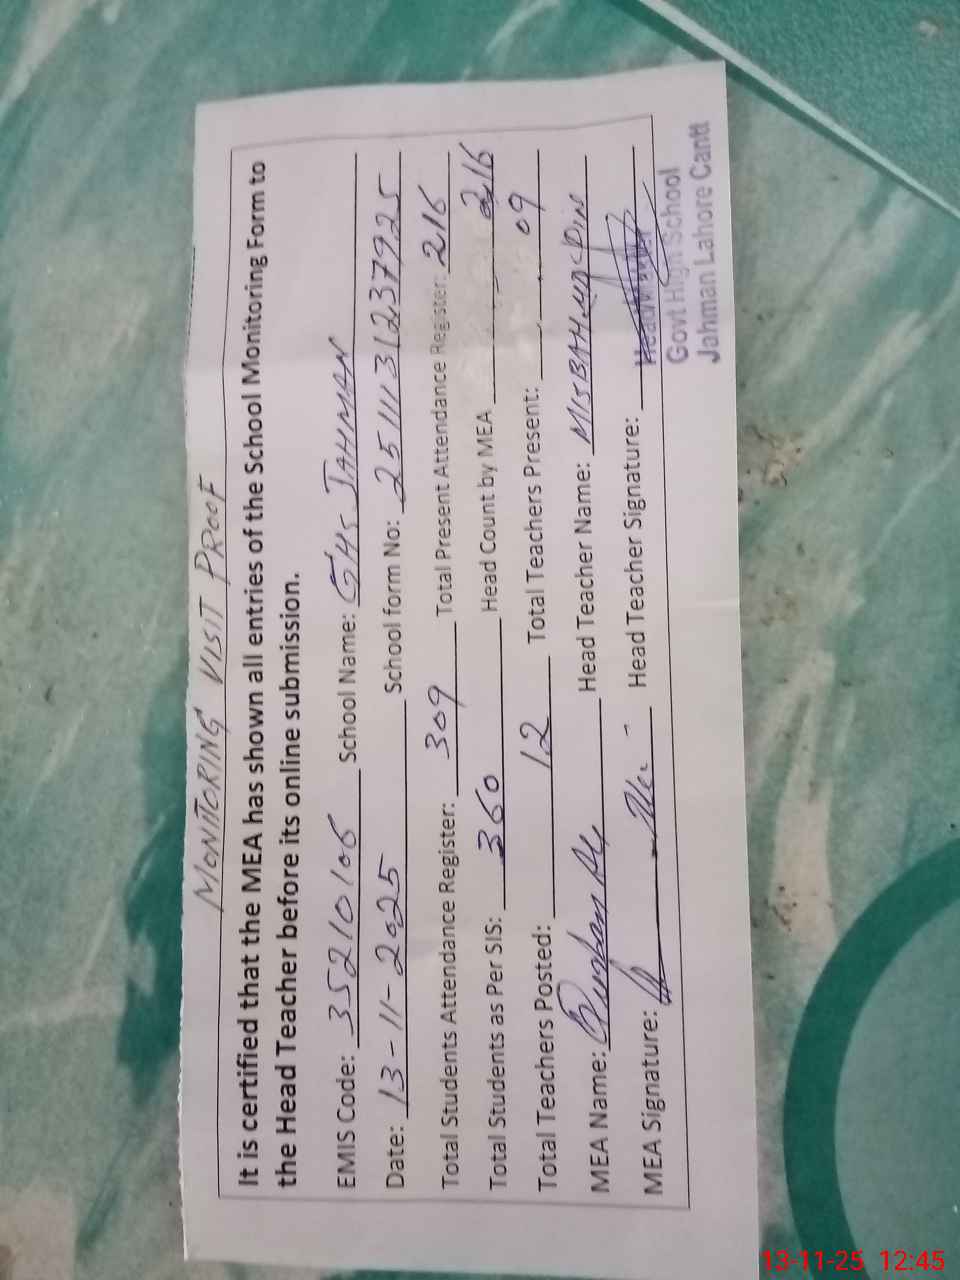 MONITORING VISIT PROOF
It is certified that the MEA has shown all entries of the School Monitoring Form to
the Head Teacher before its online submission.
EMIS Code: 35210106 School Name: GHS JAHMAN
Date: 13-11-2025 School form No: 2511131237925
Total Students Attendance Register: 309 Total Present Attendance Register: 216
Total Students as Per SIS: 360 Head Count by MEA 216
Total Teachers Posted: 12 Total Teachers Present: 09
MEA Name: Head Teacher Name: MISBAH
MEA Signature: Head Teacher Signature:
Headmaster
Govt High School
Jahman Lahore Cantt
13-11-25 12:45